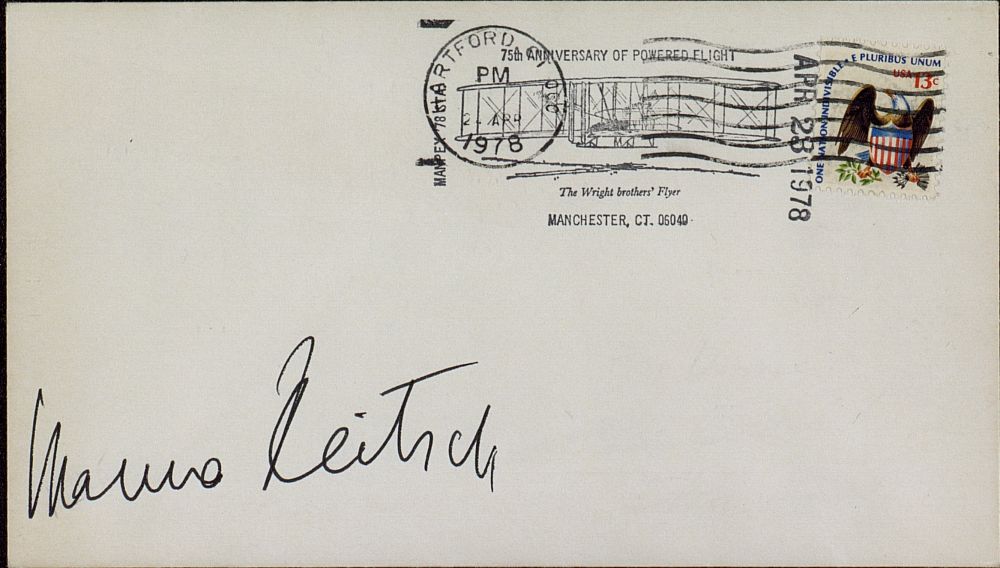 HARTFORD, CT
PM
APR
1978
060
MANPEX '78 STA.
75th ANNIVERSARY OF POWERED FLIGHT
The Wright brothers' Flyer
MANCHESTER, CT. 06040
APR 23 1978
ONE NATION INDIVISIBLE • E PLURIBUS UNUM
USA 13c
Hanna Reitsch